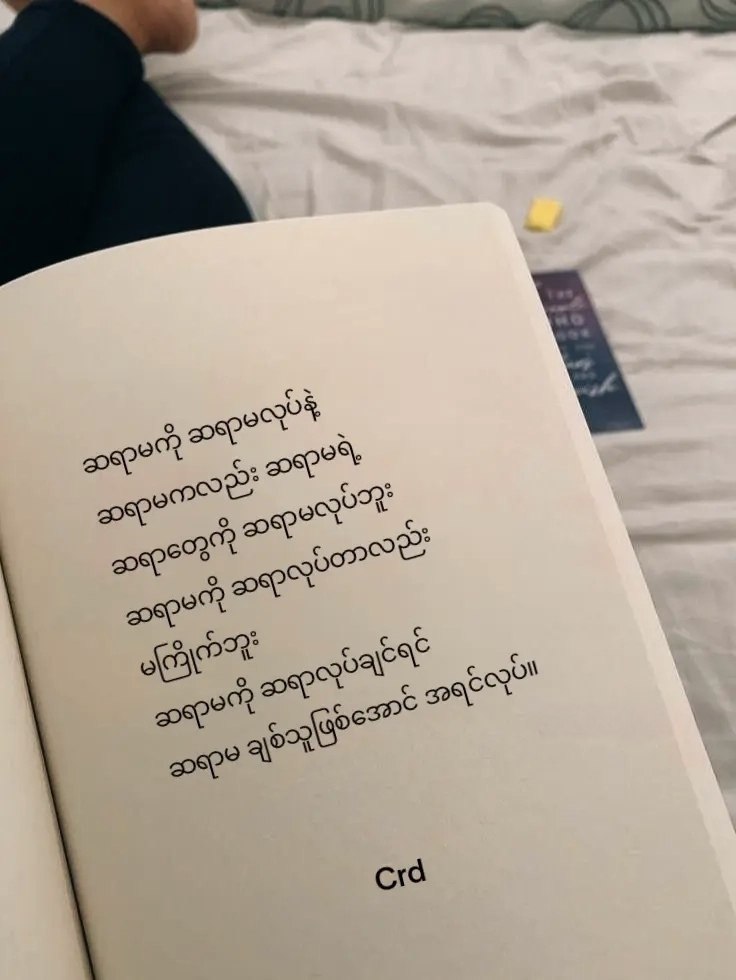 ဆရာမကို ဆရာမလုပ်နဲ့
ဆရာမကလည်း ဆရာမရဲ့
ဆရာတွေကို ဆရာမလုပ်ဘူး
ဆရာမကို ဆရာလုပ်တာလည်း
မကြိုက်ဘူး
ဆရာမကို ဆရာလုပ်ချင်ရင်
ဆရာမ ချစ်သူဖြစ်အောင် အရင်လုပ်။
Crd